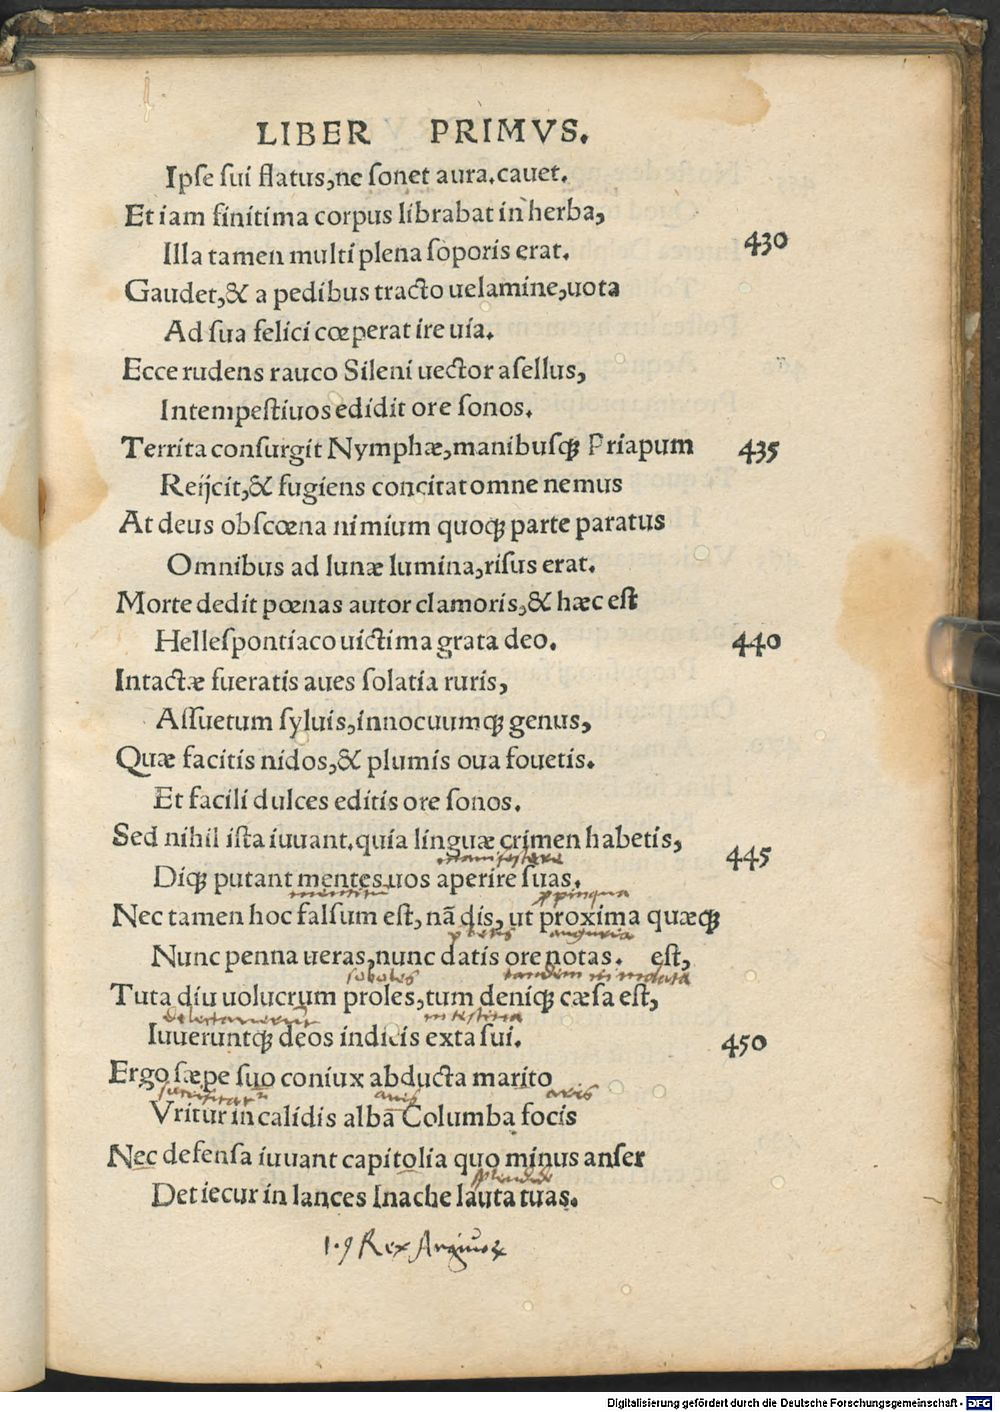 LIBER PRIMVS.
Ipse sui flatus, ne sonet aura. cauet.
Et iam finitima corpus librabat in herba,
430
Illa tamen multi plena soporis erat.
Gaudet, & a pedibus tracto uelamine, uota
Ad sua felici cœperat ire uia.
Ecce rudens rauco Sileni uector asellus,
Intempestiuos edidit ore sonos.
Territa consurgit Nymphæ, manibusq; Priapum 435
Reijcit, & fugiens concitat omne nemus
At deus obscœna nimium quoq; parte paratus
Omnibus ad lunæ lumina, risus erat.
Morte dedit pœnas autor clamoris, & hæc est
Hellespontiaco uictima grata deo. 440
Intactæ fueratis aues solatia ruris,
Assuetum syluis, innocuumq; genus,
Quæ facitis nidos, & plumis oua fouetis.
Et facili dulces editis ore sonos.
Sed nihil ista iuuant. quia linguæ crimen habetis,
445
manifestare
Diq; putant mentes uos aperire suas.
ppinqua
Nec tamen hoc falsum est, nã dis, ut proxima quæq;
auguria
Nunc penna ueras, nunc datis ore notas. est,
soboles tandem
Tuta diu uolucrum proles, tum deniq; cæsa est,
intestina
Iuueruntq; deos indicis exta sui. 450
Ergo sæpe suo coniux abducta marito
auis aris
Vritur in calidis alba Columba focis
Nec defensa iuuant capitolia quo minus anser
splendide
Det iecur in lances Inache lauta tuas.
Rex Argiuoꝝ
Digitalisierung gefördert durch die Deutsche Forschungsgemeinschaft - DFG